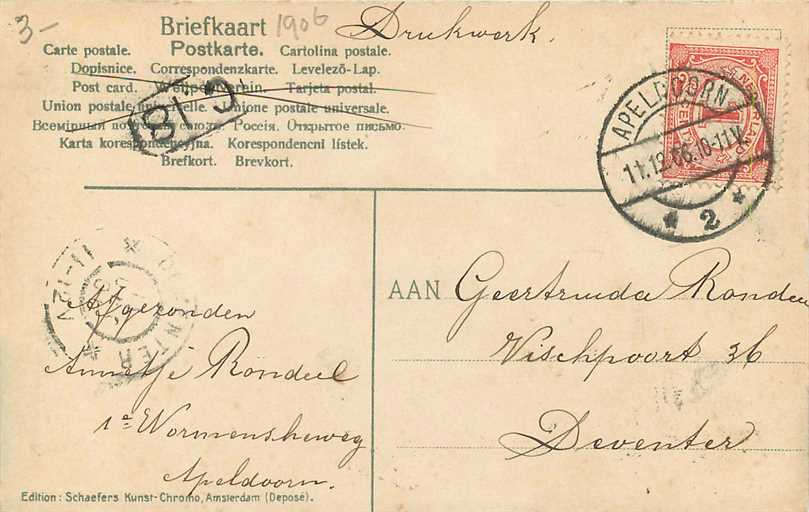 3-
Briefkaart 1906
Drukwerk.
Carte postale. Postkarte. Cartolina postale.
Dopisnice. Correspondenzkarte. Levelező-Lap.
Post card. Weltpostverein. Tarjeta postal.
Union postale universelle. Unione postale universale.
Всемірный почтовый союзъ. Россія. Открытое письмо.
Karta korespondencyjna. Korespondencni lístek.
Brefkort. Brevkort.
APELDOORN
11.12.06.10-11V.
2
DEVENTER
11-12V
AAN Geertruida Rondeel
Vischpoort 36
Deventer.
Afgezonden
Annetje Rondeel
1e Wormenscheweg
Apeldoorn.
Edition: Schaefers Kunst-Chromo, Amsterdam (Deposé).